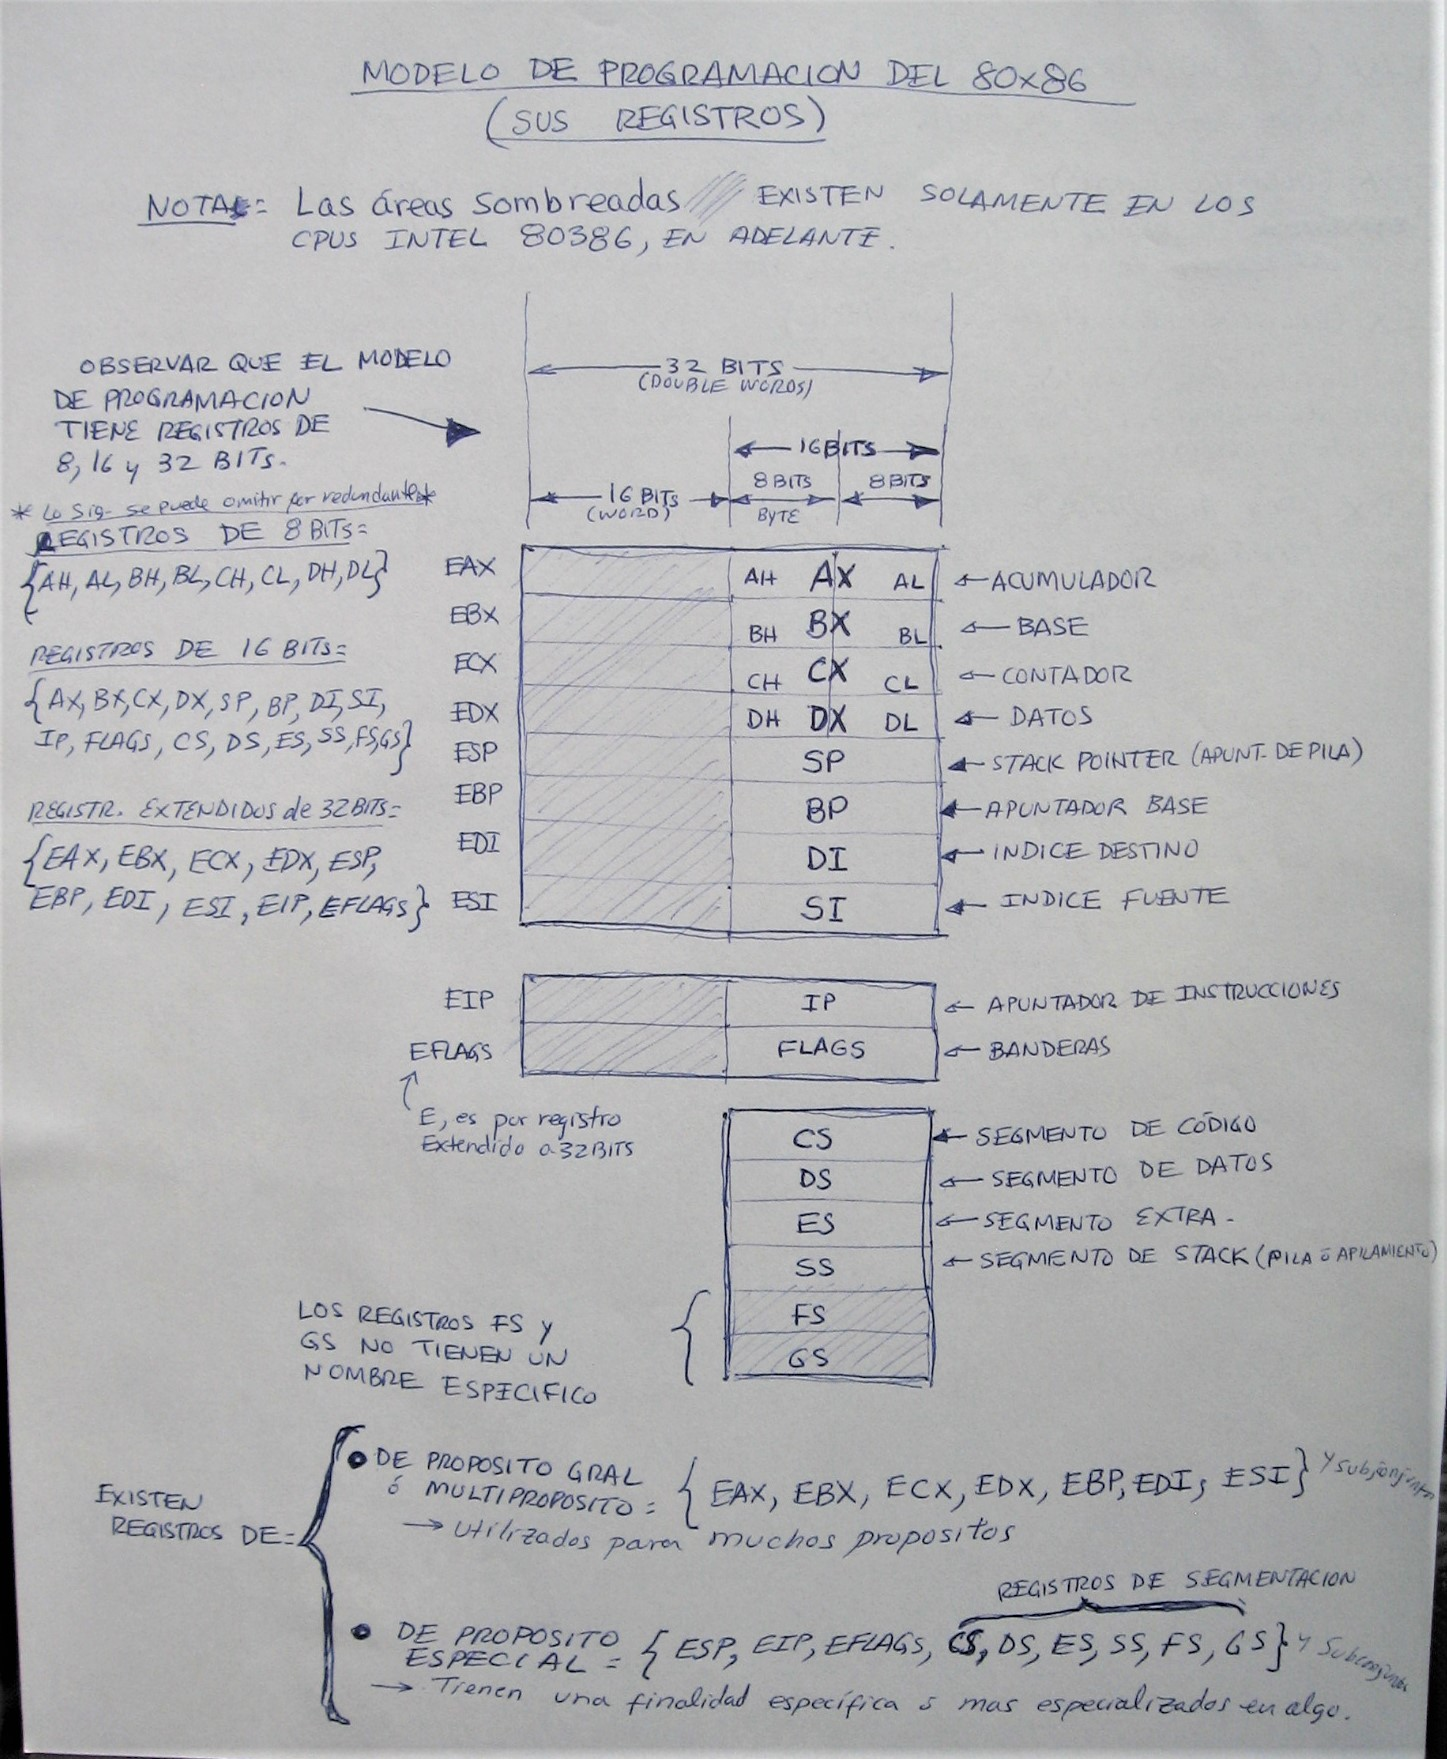 MODELO DE PROGRAMACION DEL 80x86
(SUS REGISTROS)
NOTA: Las áreas sombreadas EXISTEN SOLAMENTE EN LOS
CPUS INTEL 80386, EN ADELANTE.
OBSERVAR QUE EL MODELO
DE PROGRAMACION
TIENE REGISTROS DE
8, 16 y 32 BITs.
* Lo Sig. se puede omitir por redundante *
REGISTROS DE 8 BITs=
{AH, AL, BH, BL, CH, CL, DH, DL}
REGISTROS DE 16 BITs=
{AX, BX, CX, DX, SP, BP, DI, SI,
IP, FLAGS, CS, DS, ES, SS, FS, GS}
REGISTR. EXTENDIDOS de 32 BITS=
{EAX, EBX, ECX, EDX, ESP,
EBP, EDI, ESI, EIP, EFLAGS}
32 BITS
(DOUBLE WORDS)
16 BITS
16 BITS 8 BITS 8 BITS
(WORD) BYTE
EAX AH AX AL ACUMULADOR
EBX BH BX BL BASE
ECX CH CX CL CONTADOR
EDX DH DX DL DATOS
ESP SP STACK POINTER (APUNT. DE PILA)
EBP BP APUNTADOR BASE
EDI DI INDICE DESTINO
ESI SI INDICE FUENTE
EIP IP APUNTADOR DE INSTRUCCIONES
EFLAGS FLAGS BANDERAS
E, es por registro
Extendido a 32 BITS
CS SEGMENTO DE CÓDIGO
DS SEGMENTO DE DATOS
ES SEGMENTO EXTRA.
SS SEGMENTO DE STACK (PILA ó APILAMIENTO)
FS
GS
LOS REGISTROS FS y
GS NO TIENEN UN
NOMBRE ESPECIFICO
EXISTEN
REGISTROS DE=
• DE PROPOSITO GRAL
ó MULTIPROPOSITO = {EAX, EBX, ECX, EDX, EBP, EDI, ESI} Y subconjuntos
→ Utilizados para muchos propositos
REGISTROS DE SEGMENTACION
• DE PROPOSITO
ESPECIAL = {ESP, EIP, EFLAGS, CS, DS, ES, SS, FS, GS} Y Subconjuntos
→ Tienen una finalidad específica ó mas especializados en algo.